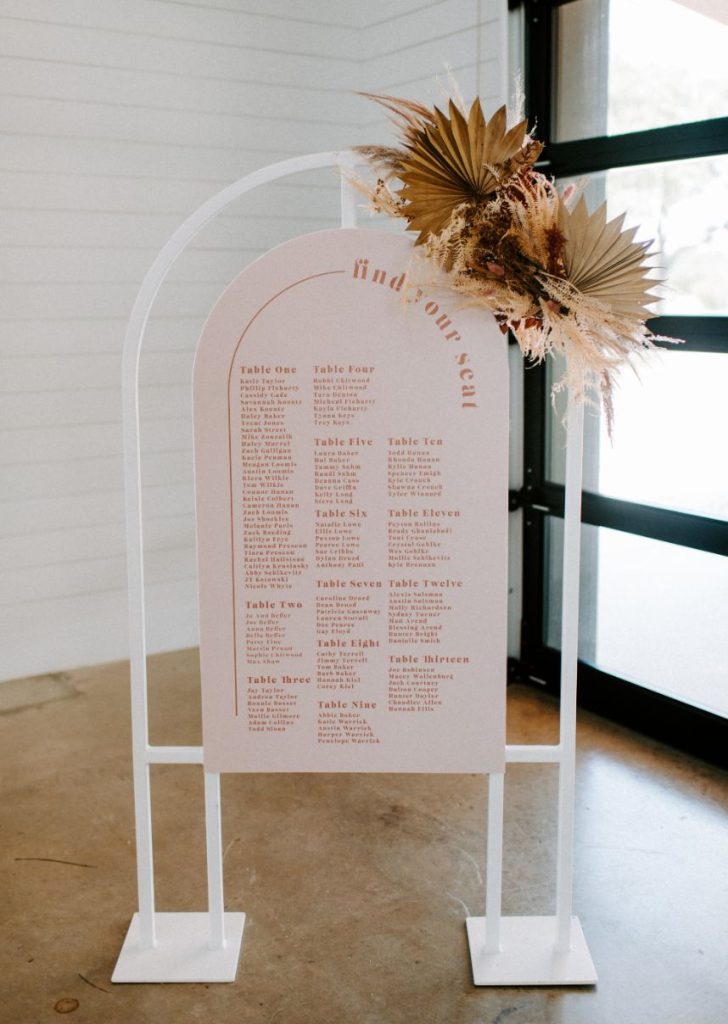 find your seat
Table One
Katie Taylor
Phillip Fleharty
Cassidy Gade
Savannah Koontz
Alex Koontz
Haley Baker
Trent Jones
Sarah Street
Mike Zouzalik
Haley Murrel
Zach Gulligan
Kacie Penman
Meagan Loomis
Austin Loomis
Kiera Wilkie
Tom Wilkie
Connor Hanan
Kelsie Colbert
Cameron Hanan
Zach Loomis
Joe Shockley
Melanie Paris
Zack Reeding
Kaitlyn Frye
Raymond Presson
Tiara Presson
Rachel Hailstone
Caitlyn
Abby Sehlkevitz
JT Kotowski
Nicole Whyte
Table Two
Jo Ann Befler
Joe Befler
Anna Befler
Bella Befler
Patsy Fine
Martin Proust
Sophie Chitwood
Max Shaw
Table Three
Jay Taylor
Andrea Taylor
Ronnie Bosset
Vera Bosset
Mollie Gilmore
Adam Collins
Todd Sloan
Table Four
Bobbi Chitwood
Mike Chitwood
Tara Denton
Micheal Fleharty
Kayla Fleharty
Tyana Keys
Trey Keys
Table Five
Laura Baker
Hal Baker
Tammy Suhm
Randi Suhm
Deanna Cass
Dave Griffin
Kelly Long
Steve Long
Table Six
Natalie Lowe
Ellie Lowe
Paxton Lowe
Pearce Lowe
Sue Cribbs
Dylan Broed
Anthony Paul
Table Seven
Caroline Droed
Dean Droed
Patricia Gassaway
Lauren Stovall
Doc Pearce
Gay Floyd
Table Eight
Cathy Terrell
Jimmy Terrell
Tom Baker
Barb Baker
Hannah Kiel
Corey Kiel
Table Nine
Abbie Baker
Katie Warrick
Austin Warrick
Harper Warrick
Penelope Warrick
Table Ten
Todd Hanan
Rhonda Hanan
Kylie Hanan
Spencer Emigh
Kyle Crouch
Shawna Crouch
Tyler Winnord
Table Eleven
Peyton Rollins
Brady Ghanlabadi
Toni Crose
Crystal Gohlke
Wes Gohlke
Mollie Sehlkevitz
Kyle Brennan
Table Twelve
Alexis Solsman
Austin Solsman
Molly Richardson
Sydney Turner
Man Avend
Blessing Avend
Hunter Bright
Danielle Smith
Table Thirteen
Joe Robinson
Macey Wallenburg
Zach Courtney
Dalton Cooper
Hunter Daylor
Chandler Allen
Hannah Ellis